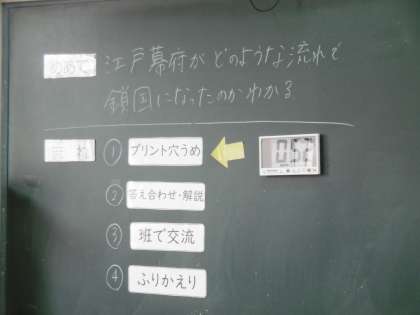 めあて 江戸幕府がどのような流れで
鎖国になったのかわかる
① プリント穴うめ
② 答え合わせ・解説
③ 班で交流
④ ふりかえり